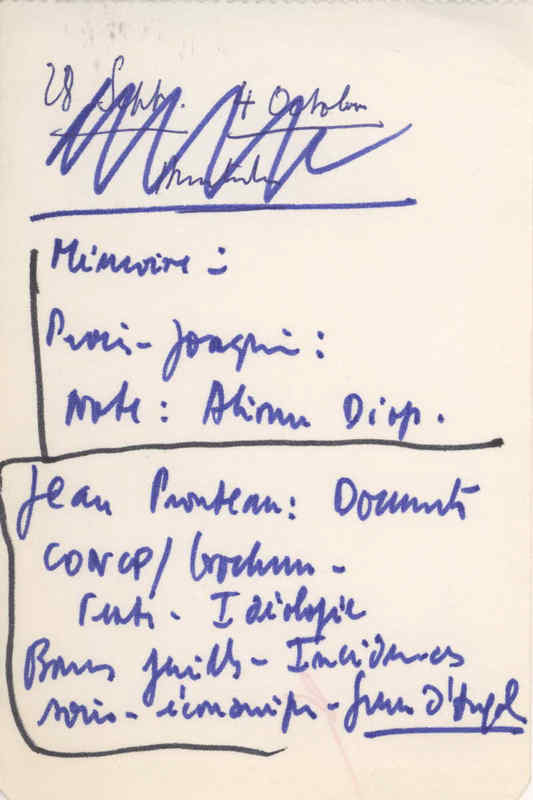 28 Septb. 4 Octobre
Mémoire :
Joaquim :
Note : Alioune Diop.
Jean Pronteau : Documents
CONCP / brochure -
Idéologie
Bonnes feuilles - Incidences
socio-économiques - guerre d'Angola